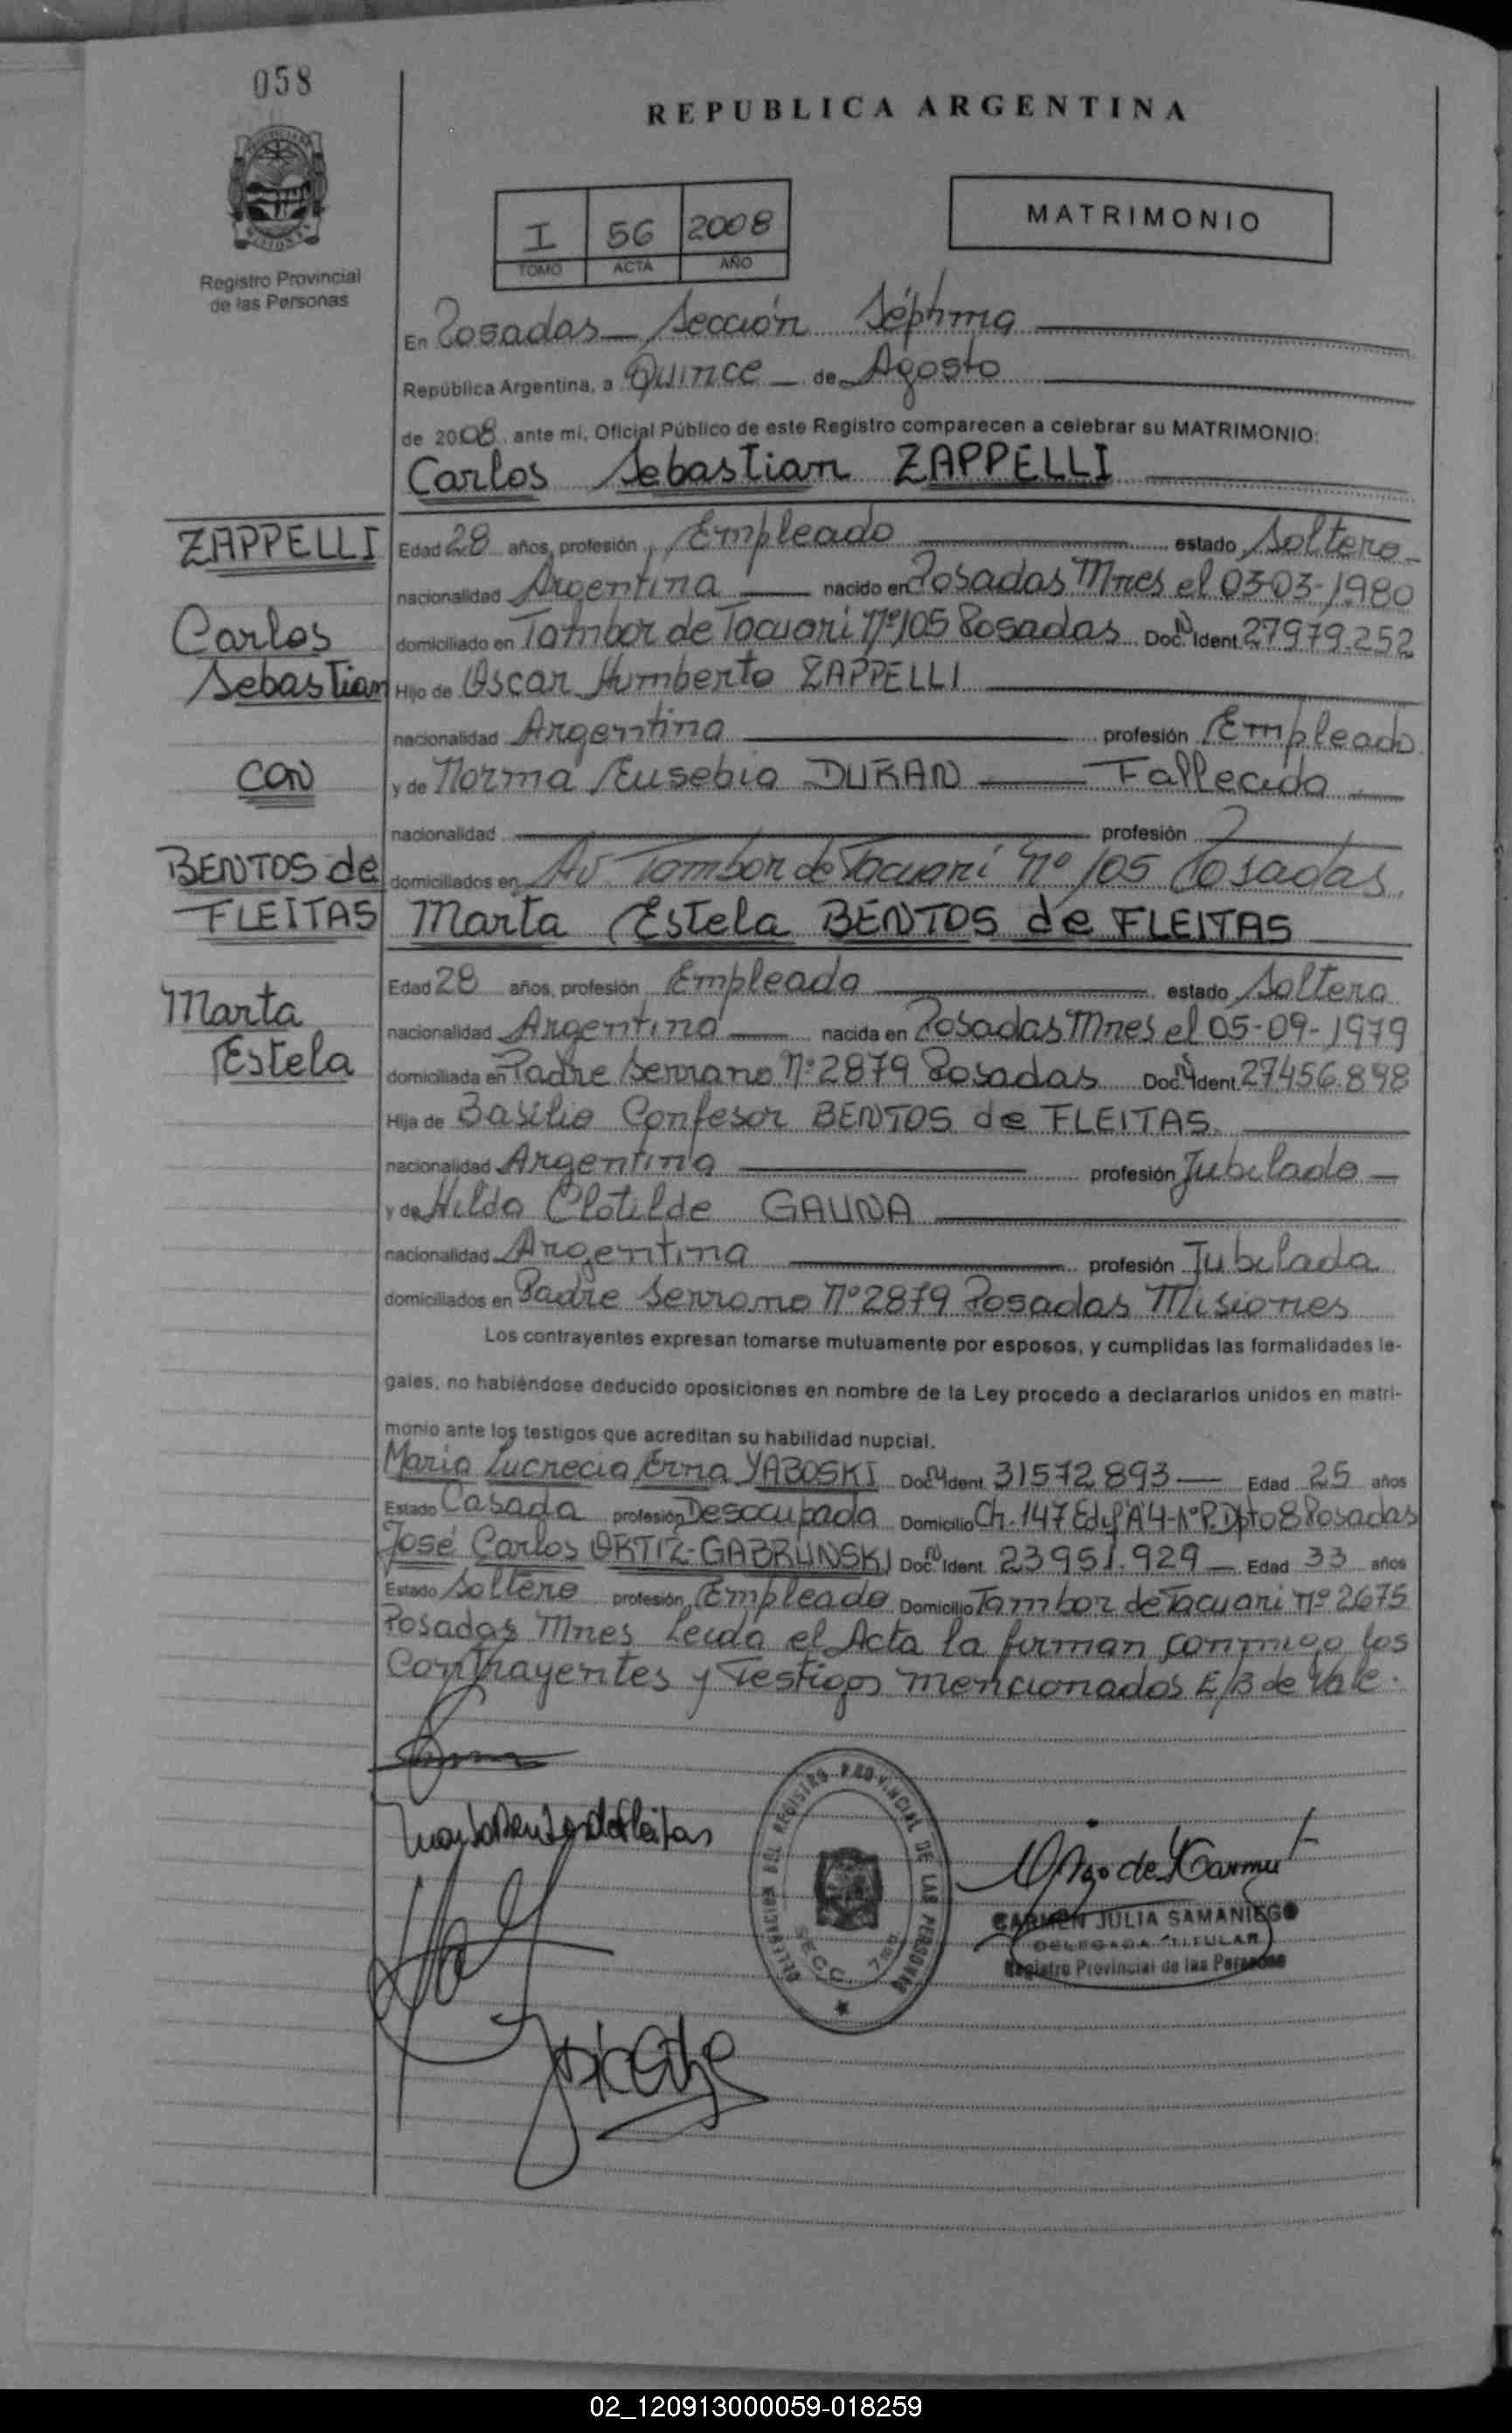 058
REPUBLICA ARGENTINA
Registro Provincial
de las Personas
I 56 2008
TOMO ACTA AÑO
MATRIMONIO
En Posadas Sección Séptima
República Argentina, a Quince de Agosto
de 2008 ante mí, Oficial Público de este Registro comparecen a celebrar su MATRIMONIO:
Carlos Sebastian ZAPPELLI
ZAPPELLI
Carlos
Sebastian
CON
BENTOS de
FLEITAS
Marta
Estela
Edad 28 años, profesión, Empleado estado Soltero
nacionalidad Argentina nacido en Posadas Mnes el 03-03-1980
domiciliado en Tambor de Tacuari nº 105 Posadas Doc. N Ident 27979.252
Hijo de Oscar Humberto ZAPPELLI
nacionalidad Argentina profesión Empleado
y de Norma Eusebia DURAN Fallecida
nacionalidad profesión
domiciliados en Av. Tambor de Tacuari nº 105 Posadas
Marta Estela BENTOS de FLEITAS
Edad 28 años, profesión Empleada estado Soltera
nacionalidad Argentina nacida en Posadas Mnes el 05-09-1979
domiciliada en Padre Serrano nº 2879 Posadas Doc. N Ident. 27456.898
Hija de Basilio Confesor BENTOS de FLEITAS
nacionalidad Argentina profesión Jubilado
y de Hilda Clotilde GAUNA
nacionalidad Argentina profesión Jubilada
domiciliados en Padre Serrano nº 2879 Posadas Misiones
Los contrayentes expresan tomarse mutuamente por esposos, y cumplidas las formalidades le-
gales, no habiéndose deducido oposiciones en nombre de la Ley procedo a declararlos unidos en matri-
monio ante los testigos que acreditan su habilidad nupcial.
Maria Lucrecia Erna YABOSKI Doc. N Ident. 31572893 Edad 25 años
Estado Casada profesión Desocupada Domicilio Ch. 147 Edif A4-Nº P. Dpto 8 Posadas
José Carlos ORTIZ-GABRUNSKI Doc. N Ident. 23951.929 Edad 33 años
Estado Soltero profesión Empleado Domicilio Tambor de Tacuari nº 2675
Posadas Mnes Leida el Acta la firman conmigo los
Contrayentes y Testigos mencionados E/B de Vale.
DELEGACION DEL REGISTRO PROVINCIAL DE LAS PERSONAS
SECC. 7ma
CARMEN JULIA SAMANIEGO
DELEGADA TITULAR
Registro Provincial de las Personas
02_120913000059-018259